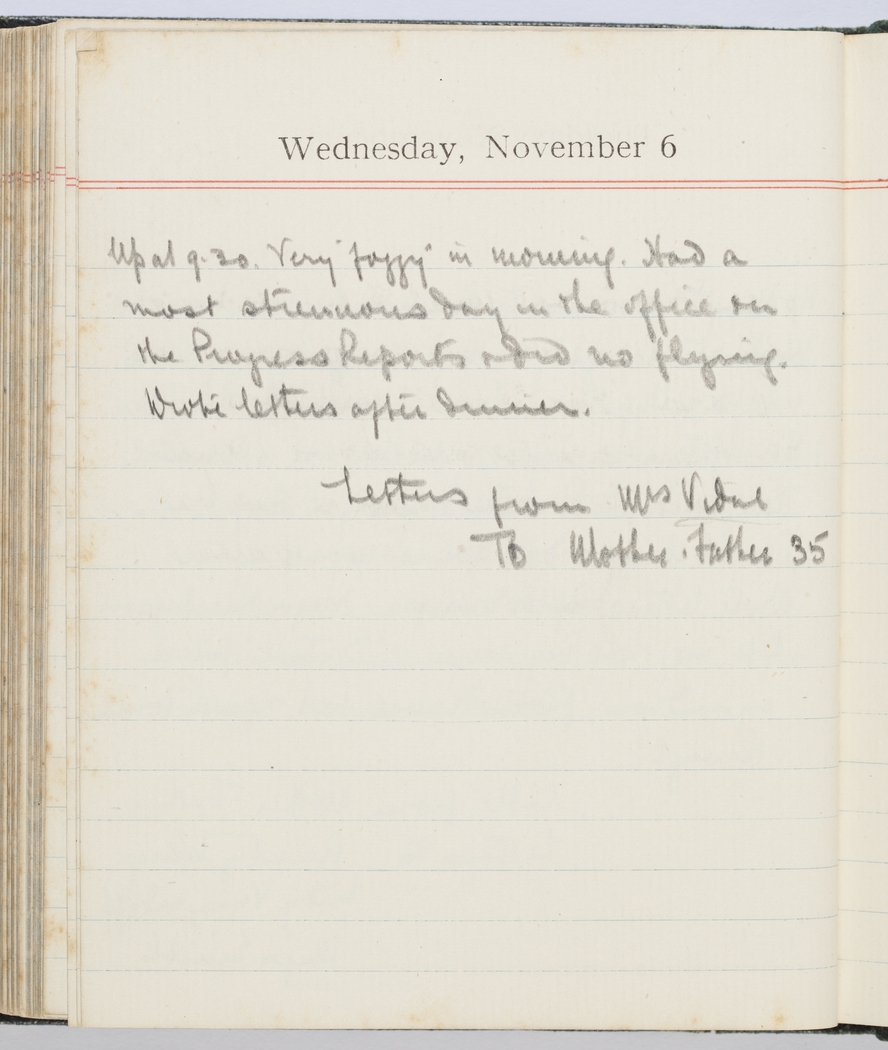 Wednesday, November 6
Up at 9.30. Very "foggy" in morning. Had a
most strenuous day in the office on
the Progress Reports & did no flying.
Wrote letters after dinner.
Letters from Mrs Vidal
To Mother & Father 35